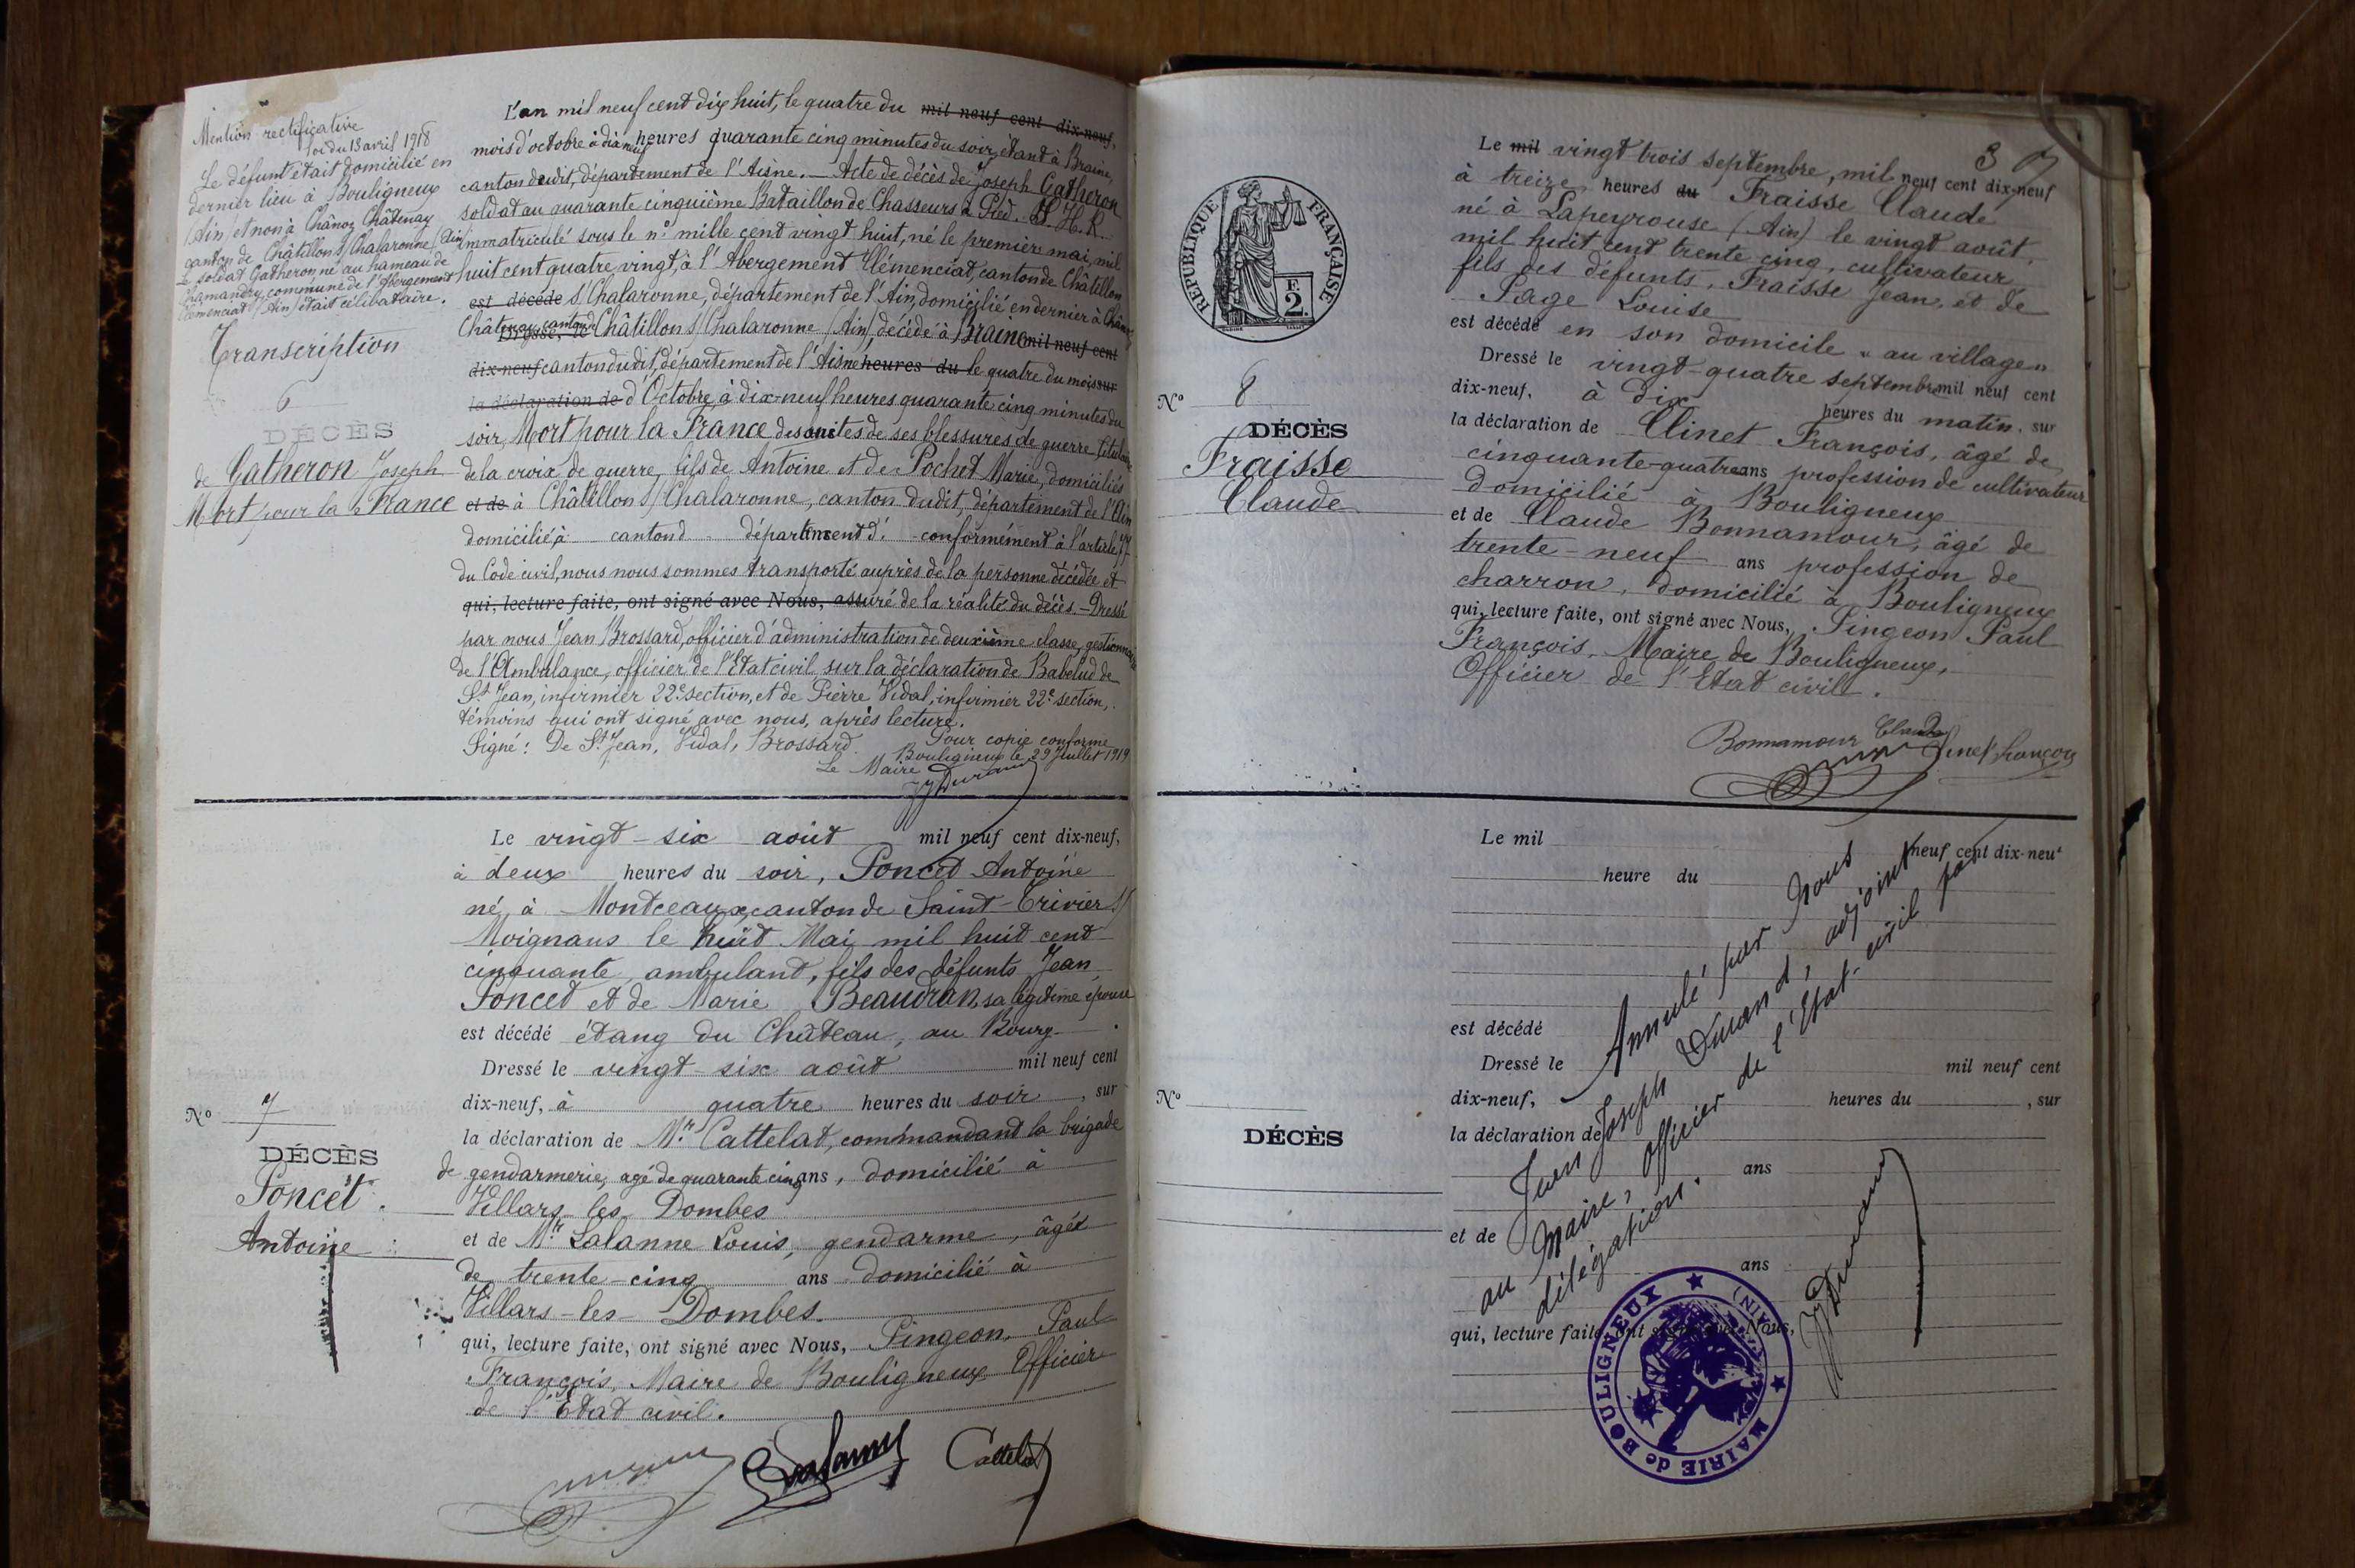 Mention rectificative
loi du 13 avril 1918
Le défunt était domicilié en
dernier lieu à Bouligneux
(Ain) et non à Chânoz Châtenay
canton de Châtillon s/ Chalaronne (Ain)
Le soldat Gatheron né au hameau de
commune de l'Abergement
Clémenciat (Ain) était célibataire.
Transcription
6
DÉCÈS
de Gatheron Joseph
Mort pour la France
L'an mil neuf cent dix huit, le quatre du mil neuf cent dix-neuf,
mois d'octobre à dix neuf heures quarante cinq minutes du soir, étant à Braine,
canton dudit, département de l'Aisne. — Acte de décès de Joseph Gatheron
soldat au quarante cinquième Bataillon de Chasseurs à Pied. S. H. R.
immatriculé sous le n° mille cent vingt huit, né le premier mai, mil
huit cent quatre vingt, à l'Abergement Clémenciat, canton de Châtillon
est décédé S/ Chalaronne, département de l'Ain, domicilié en dernier à Chânoz
Châtenay, canton de Châtillon S/ Chalaronne (Ain), décédé à Braine mil neuf cent
dix-neuf canton dudit, département de l'Aisne heures du le quatre du mois sur
la déclaration de d'Octobre, à dix-neuf heures quarante cinq minutes du
soir, Mort pour la France des suites de ses blessures de guerre. Titulaire
de la croix de guerre, fils de Antoine et de Pochet Marie, domiciliés
et de à Châtillon S/ Chalaronne, canton dudit, département de l'Ain
domicilié à canton d département d' conformément à l'article 77
du Code civil, nous nous sommes transporté auprès de la personne décédée et
qui, lecture faite, ont signé avec Nous, assuré de la réalité du décès. — Dressé
par nous Jean Brossard, officier d'administration de deuxième classe, gestionnaire
de l'Ambulance, officier de l'Etat civil sur la déclaration de Babelud de
St Jean, infirmier 22e section, et de Pierre Vidal, infirmier 22e section,
témoins qui ont signé avec nous, après lecture.
Signé: De St Jean, Vidal, Brossard.
Pour copie conforme
Bouligneux le 29 Juillet 1919
Le Maire
JJDurand
N° 7
DÉCÈS
Poncet
Antoine
Le vingt-six août mil neuf cent dix-neuf,
à deux heures du soir, Poncet Antoine
né à Montceaux, canton de Saint-Trivier S/
Moignans le huit Mai mil huit cent
cinquante, ambulant, fils des défunts Jean
Poncet et de Marie Beaudran, sa légitime épouse
est décédé étang du Château, au Bourg.
Dressé le vingt-six août mil neuf cent
dix-neuf, à quatre heures du soir, sur
la déclaration de Mr Cattelat, commandant la brigade
de gendarmerie, agé de quarante cinq ans, domicilié à
Villars les Dombes
et de Mr Lalanne Louis, gendarme, âgé
de trente-cinq ans domicilié à
Villars-les-Dombes.
qui, lecture faite, ont signé avec Nous, Pingeon, Paul
François, Maire de Bouligneux Officier
de l'Etat civil.
Lalanne Cattelat
3
RÉPUBLIQUE FRANÇAISE
F.
2.
N° 8
DÉCÈS
Fraisse
Claude
Le mil vingt trois septembre, mil neuf cent dix-neuf
à treize heures du Fraisse Claude
né à Lapeyrouse (Ain) le vingt août,
mil huit cent trente cinq, cultivateur
fils des défunts, Fraisse Jean, et de
Page Louise
est décédé en son domicile "au village"
Dressé le vingt-quatre septembre mil neuf cent
dix-neuf, à dix heures du matin, sur
la déclaration de Clinet François, âgé de
cinquante-quatre ans profession de cultivateur
domicilié à Bouligneux
et de Claude Bonnamour, âgé de
trente-neuf ans profession de
charron, domicilié à Bouligneux
qui, lecture faite, ont signé avec Nous, Pingeon Paul
François, Maire de Bouligneux,
Officier de l'Etat civil.
Bonnamour Claude
Clinet François
N°
DÉCÈS
Le mil neuf cent dix-neuf
heure du
est décédé
Dressé le mil neuf cent
dix-neuf, heures du , sur
la déclaration de
ans
et de
ans
qui, lecture faite, ont signé avec Nous,
Annulé par Nous
Jean Joseph Durand, adjoint
au Maire, officier de l'Etat-civil par
délégation.
JJDurand
MAIRIE de BOULIGNEUX (AIN)